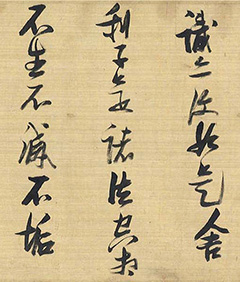 識亦復如是舍
利子是諸法空相
不生不滅不垢